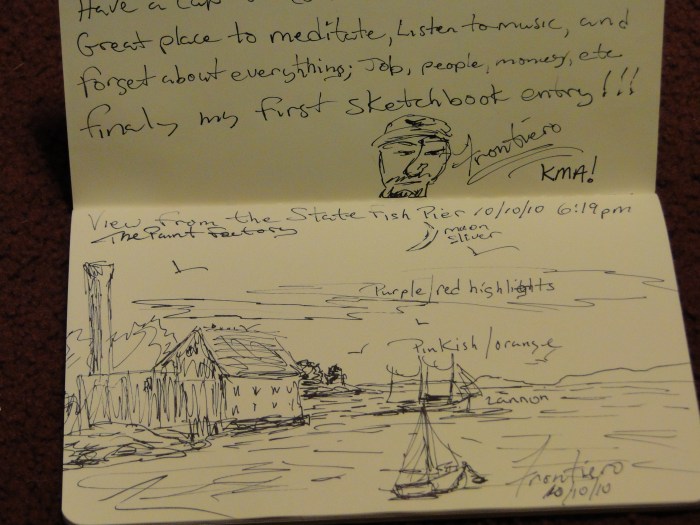 Have a cup
Great place to meditate, Listen to music, and
forget about everything; Job, people, money, etc
finaly my first sketchbook entry!!!
Frontiero
KMA!
View from the State Fish Pier 10/10/10 6:19pm
The Paint Factory
moon
sliver
Purple/red highlights
Pinkish/orange
Lannon
Frontiero
10/10/10